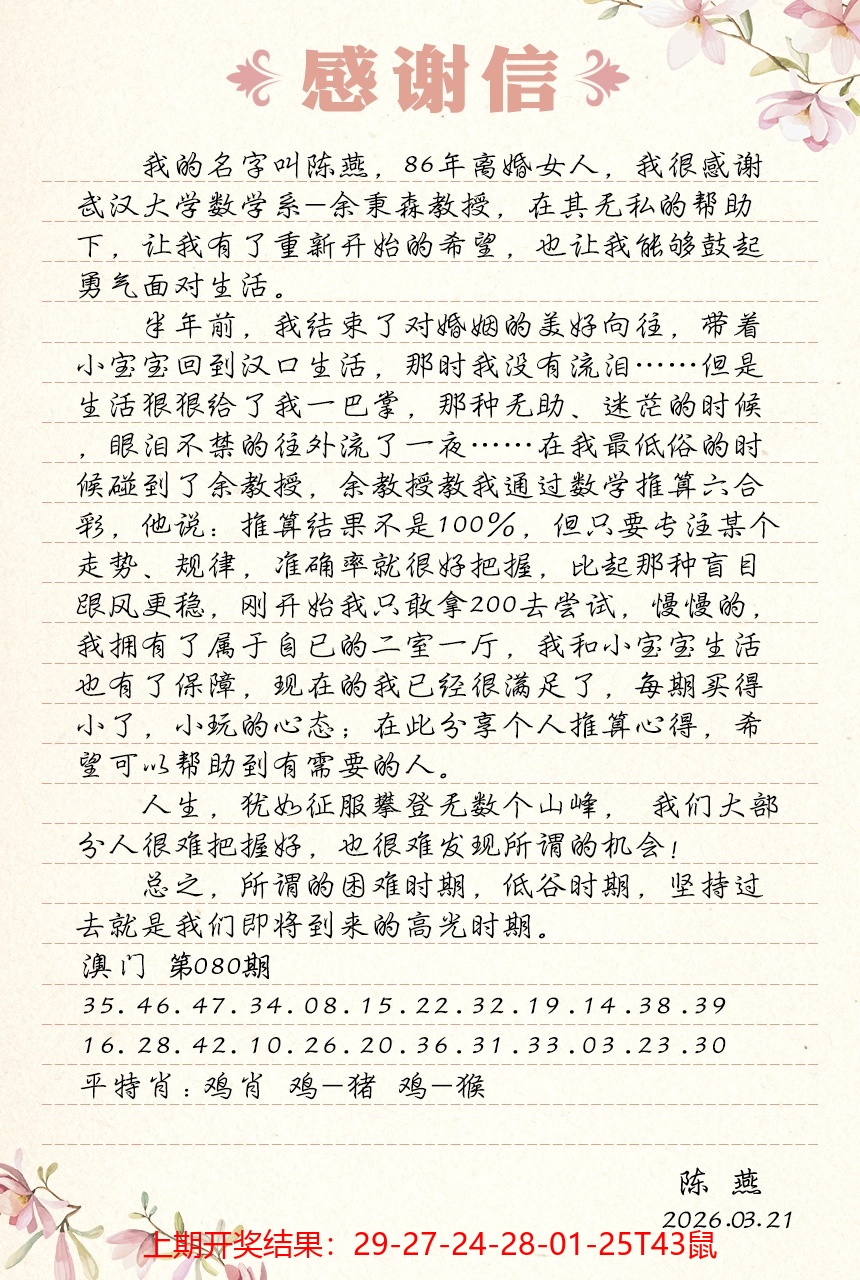 感谢信
我的名字叫陈燕，86年离婚女人，我很感谢
武汉大学数学系—余秉森教授，在其无私的帮助
下，让我有了重新开始的希望，也让我能够鼓起
勇气面对生活。
半年前，我结束了对婚姻的美好向往，带着
小宝宝回到汉口生活，那时我没有流泪……但是
生活狠狠给了我一巴掌，那种无助、迷茫的时候
，眼泪不禁的往外流了一夜……在我最低俗的时
候碰到了余教授，余教授教我通过数学推算六合
彩，他说：推算结果不是100%，但只要专注某个
走势、规律，准确率就很好把握，比起那种盲目
跟风更稳，刚开始我只敢拿200去尝试，慢慢的，
我拥有了属于自已的二室一厅，我和小宝宝生活
也有了保障，现在的我已经很满足了，每期买得
小了，小玩的心态；在此分享个人推算心得，希
望可以帮助到有需要的人。
人生，犹如征服攀登无数个山峰， 我们大部
分人很难把握好，也很难发现所谓的机会！
总之，所谓的困难时期，低谷时期，坚持过
去就是我们即将到来的高光时期。
澳门 第080期
35.46.47.34.08.15.22.32.19.14.38.39
16.28.42.10.26.20.36.31.33.03.23.30
平特肖：鸡肖 鸡—猪 鸡—猴
陈 燕
2026.03.21
上期开奖结果：29-27-24-28-01-25T43鼠